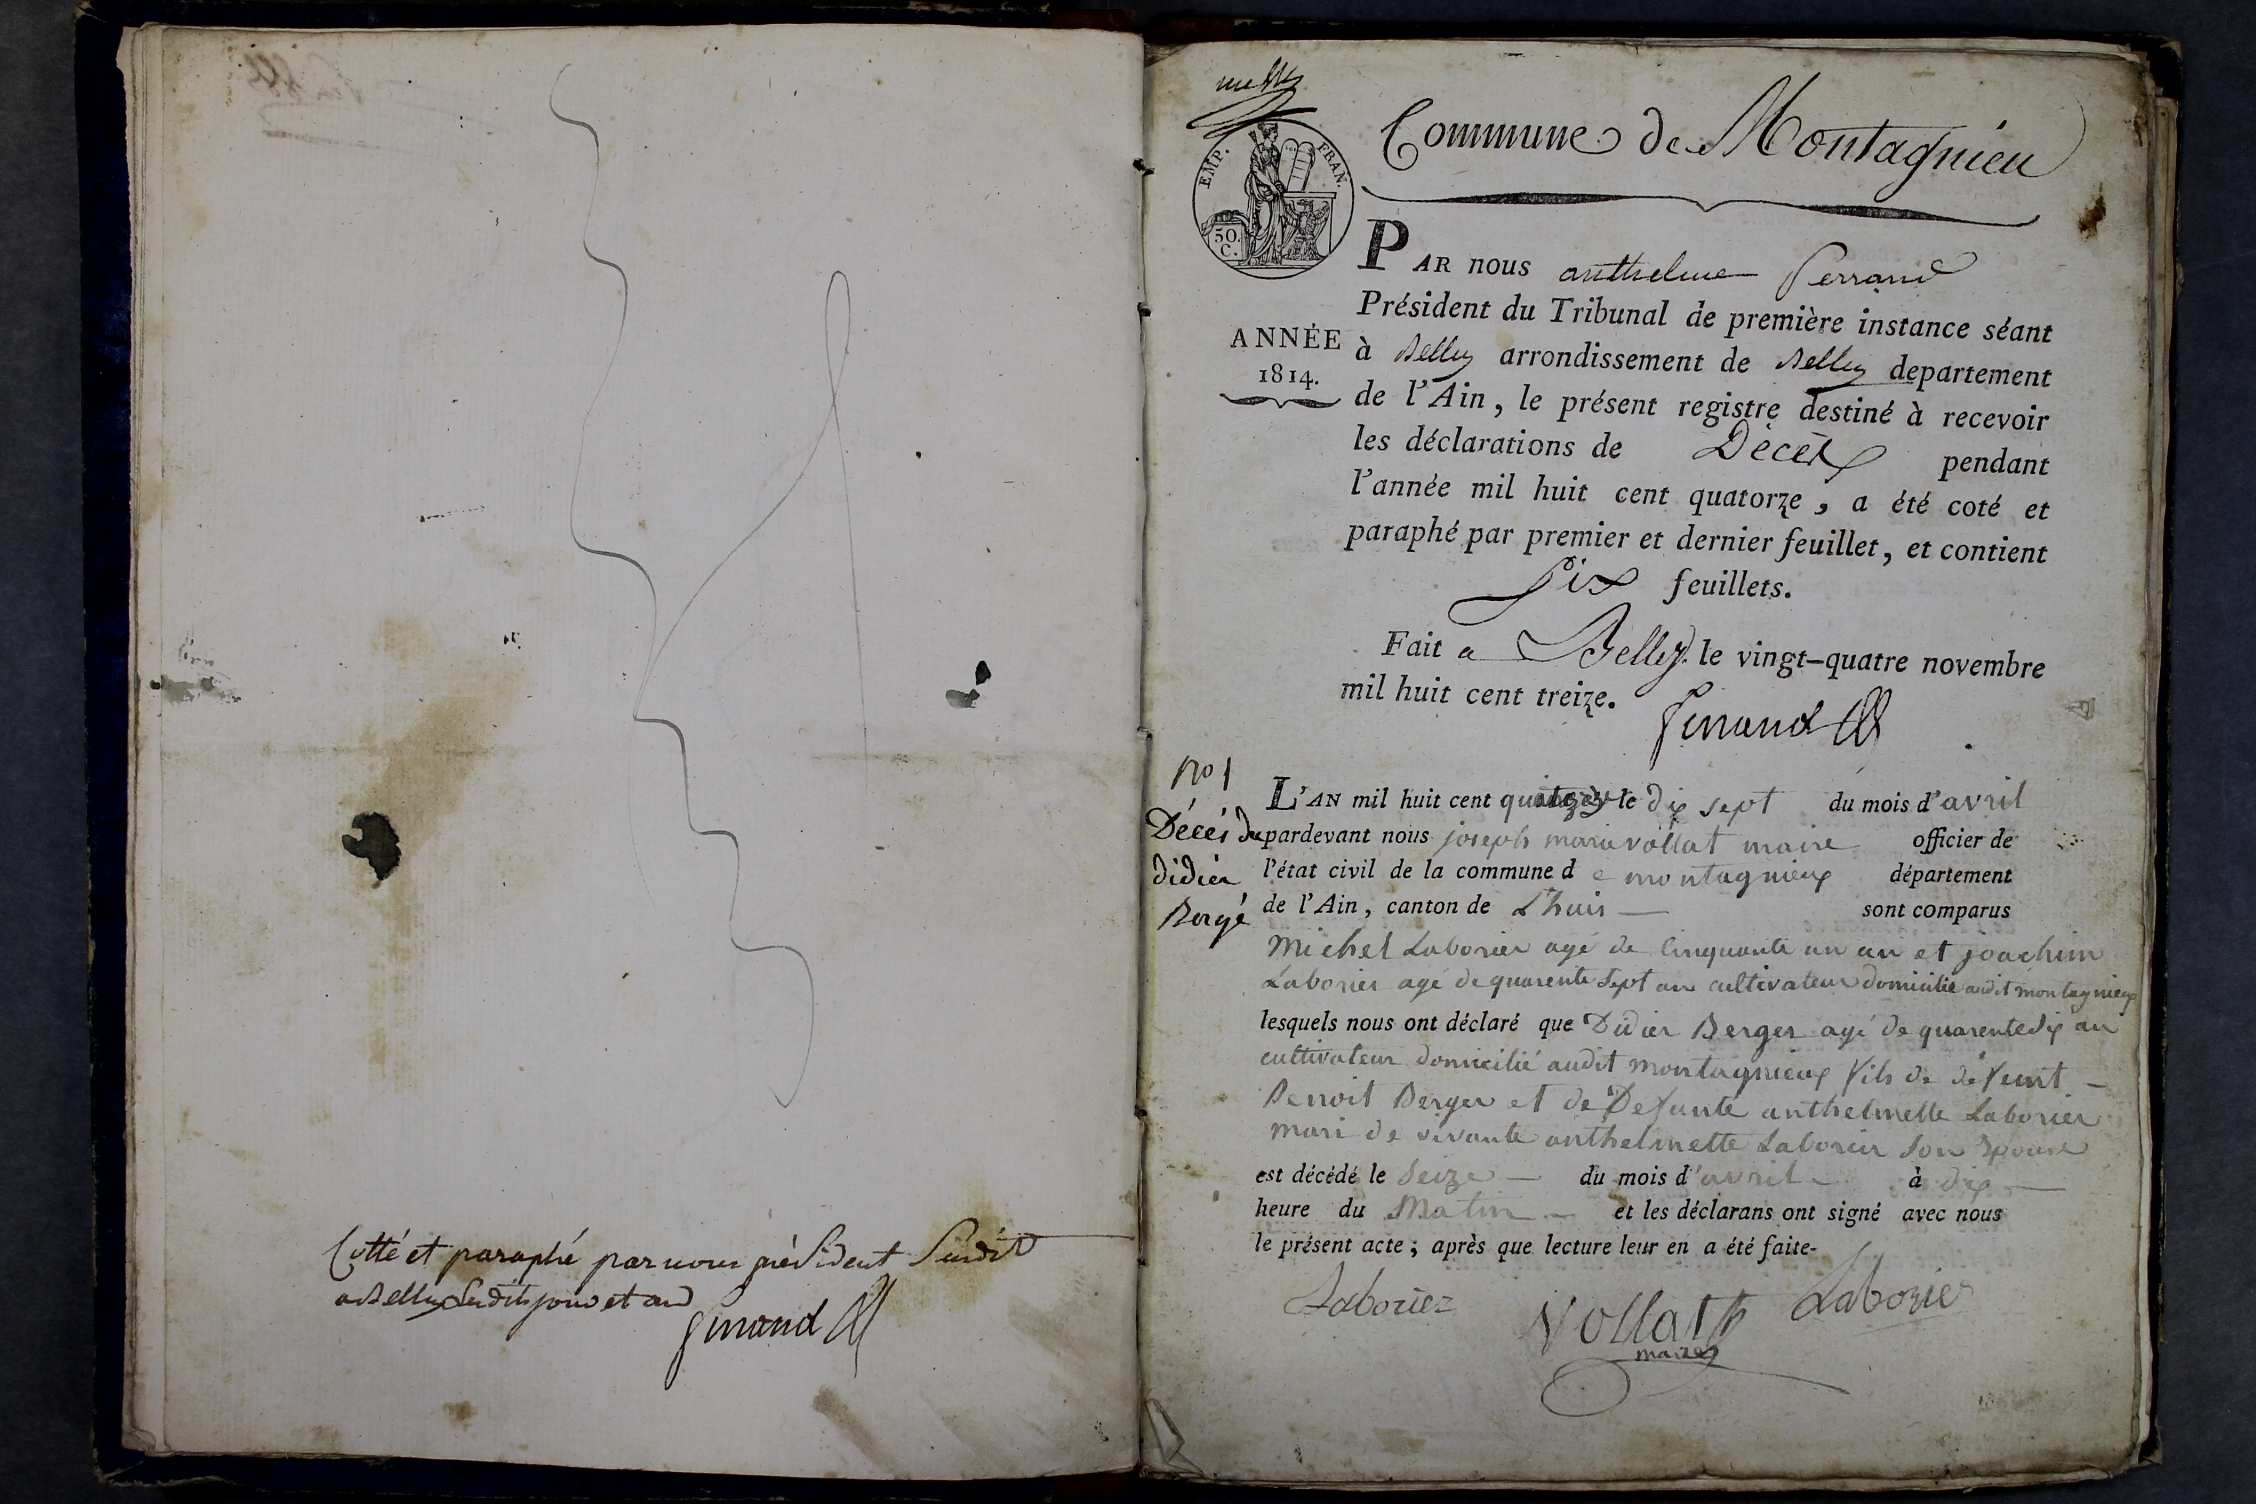 Cotté et paraphé par nous président Susdit
a Belley Susdits jour et an
Ferrand
Commune de Montagnieu
EMP. FRAN.
50.
C.
PAR nous anthelme Ferrand
Président du Tribunal de première instance séant
ANNÉE
1814.
à Belley arrondissement de Belley departement
de l'Ain, le présent registre destiné à recevoir
les déclarations de Décès pendant
l'année mil huit cent quatorze, a été coté et
paraphé par premier et dernier feuillet, et contient
Six feuillets.
Fait a Belley. le vingt-quatre novembre
mil huit cent treize.
Ferrand
No 1
Décés du
didier
Bergé
L'AN mil huit cent le dix sept du mois d'avril
pardevant nous joseph marie vollat maire officier de
l'état civil de la commune d e montagnieux département
de l'Ain, canton de Lhuis sont comparus
Michel Laborier agé de Cinquante un an et joachim
Laborier agé de quarente Sept an cultivateur domicilié audit montagnieux
lesquels nous ont déclaré que Didier Berger agé de quarente dix an
cultivateur domicilié audit montagnieux fils de defeunt
Benoit Berger et de Defunte anthelmette Laborier
mari de vivante anthelmette Laborier Son Epouse
est décédé le Seize du mois d'avril à dix
heure du Matin et les déclarans ont signé avec nous
le présent acte; après que lecture leur en a été faite.
Laborier Vollat Laborier
maire